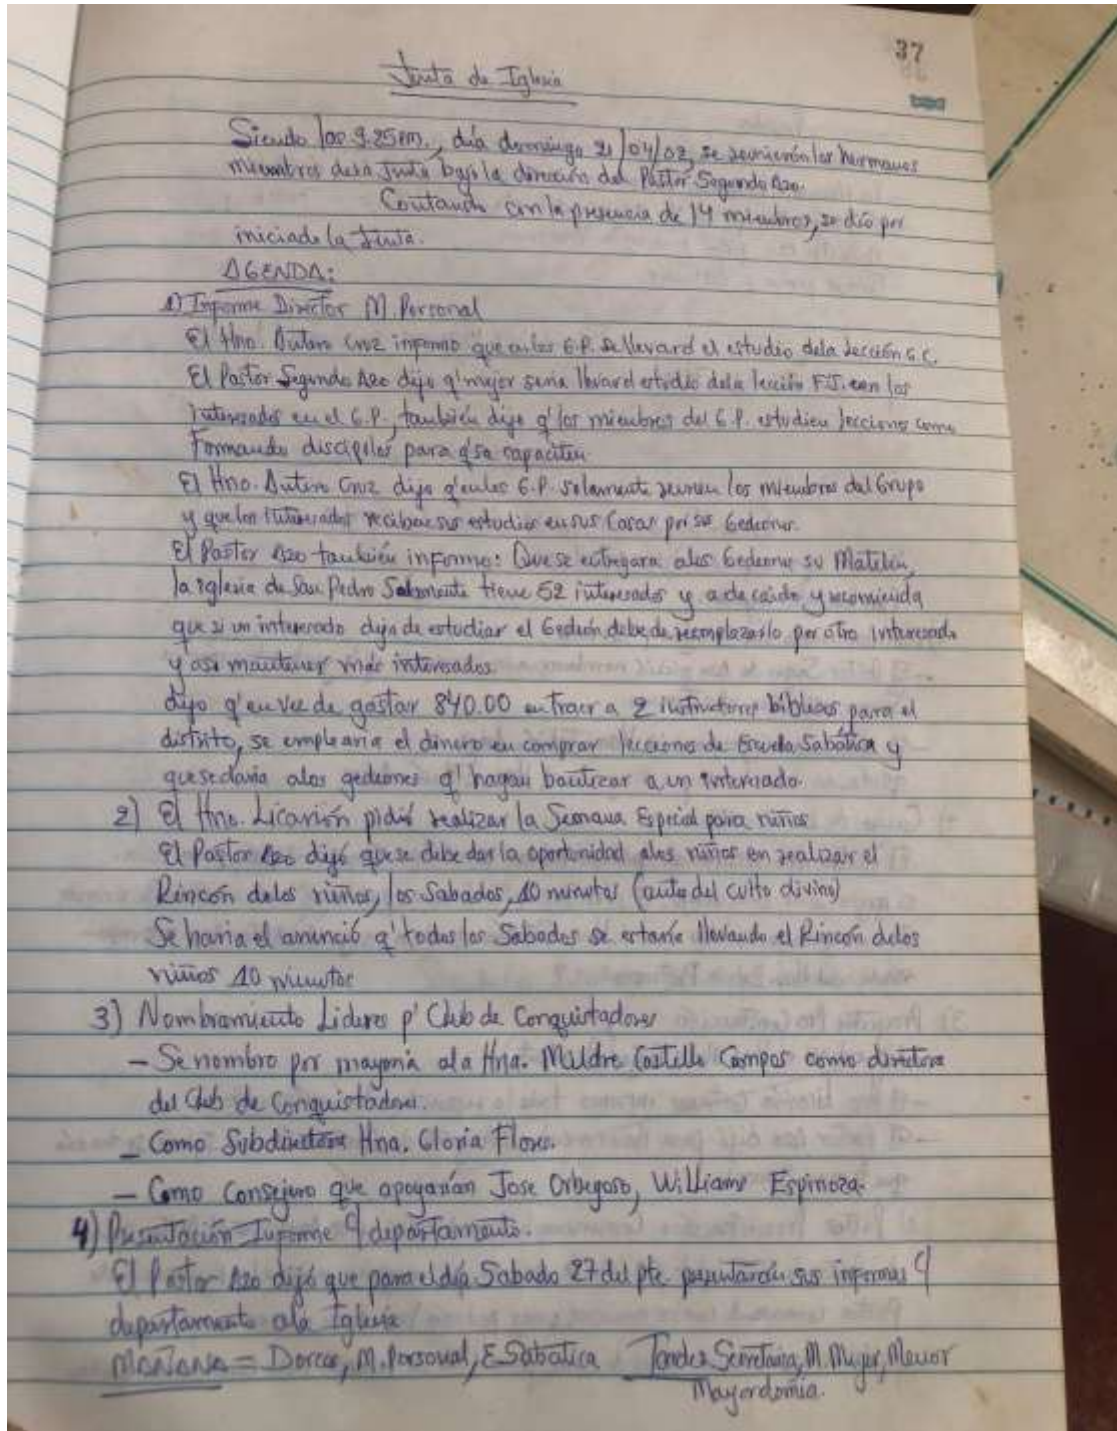 37
Junta de Iglesia
Siendo las 9.25 pm., día domingo 21/04/02, se reunierón los hermanos
miembros dela Junta bajo la dirección del Pastor Segundo Azo.
Contando con la presencia de 14 miembros, se dio por
iniciado la Junta.
AGENDA:
1) Informe Director M. Personal
El Hno. Cruz informo que en los G.P. se llevará el estudio dela lección G.C.
El Pastor Segundo Azo dijo q' mejor seria llevar el estudio dela lección F.J. con los
interesados en el G.P., también dijo q' los miembros del G.P. estudien lecciones como
Formando discipulos para q' se capaciten
El Hno. Cruz dijo q' en los G.P. solamente reunen los miembros del Grupo
y que los interesados reciban sus estudios en sus Casas por sus Gedeones.
El Pastor Azo también informo: Que se entregara alos Gedeones su
la iglesia de San Pedro Solamente tiene 52 interesados y a decaido y recomienda
que si un interesado deja de estudiar el Gedeón debe de reemplazarlo por otro interesado
y asi mantener más interesados.
dijo q' en vez de gastar 840.00 en traer a 2 instructores bíblicos para el
distrito, se emplearia el dinero en comprar lecciones de Escuela Sabática y
que se daria alos gedeones q' hagan bautizar a un interesado.
2) El Hno. Licarión pidió realizar la Semana Especial para niños
El Pastor Azo dijó que se debe dar la oportunidad alos niños en realizar el
Rincón delos niños, los Sabados, 10 minutos (antes del culto divino)
Se haria el anunció q' todos los Sabados se estaría llevando el Rincón delos
niños 10 minutos
3) Nombramiento Lideres p' Club de Conquistadores
- Se nombro por mayoría ala Hna. Mildre Castillo Campos como directora
del Club de Conquistadores.
- Como Subdirectora Hna. Gloria Flores.
- Como Consejero que apoyarían Jose Orbegoso, Williams Espinoza.
4) Presentación Informe departamento.
El Pastor Azo dijó que para el día Sabado 27 del pte. presentarán sus informes
departamento ala Iglesia
MAÑANA = Dorcas, M. Personal, E. Sabatica Tarde= Secretaria, M. Mujer, Menor
Mayordomía.